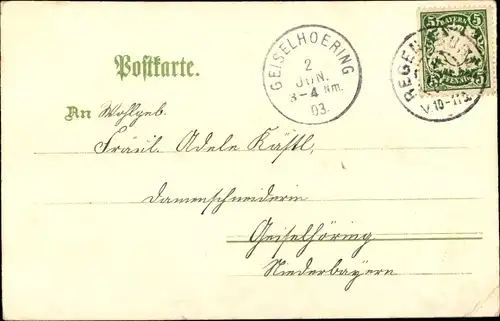 Postkarte.
GEISELHOERING
2
JUN.
3-4 Nm.
03.
5 BAYERN 5
REGEN
V. 10-11
An Wohlgeb.
Fräul. Adele Kästl,
Damenschneiderin
Geiselhöring
Niederbayern